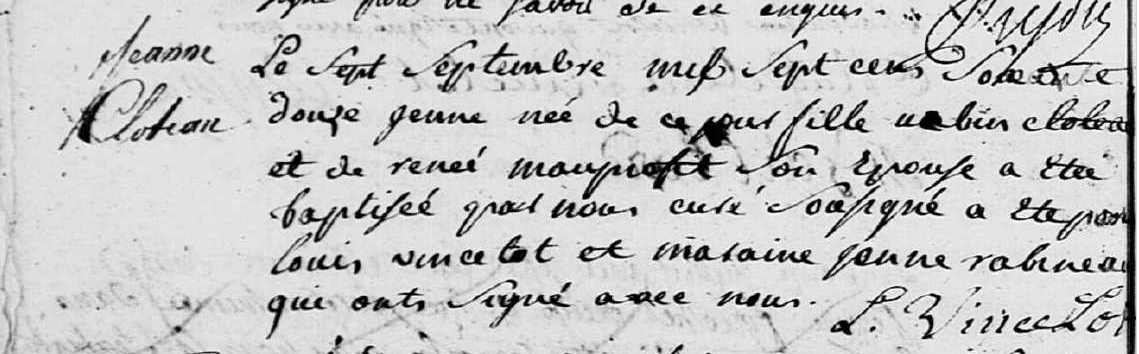 signé pour ne savoir de ce enquis.
Jeanne
Cloteau
Le sept septembre mil sept cens soixente
douze jenne née de ce jour fille urbin clotea
et de reneé maupoint son epouse a eteé
baptiseé par nous curé sousigné a ete par
louis vincelot et maraine jenne rabineau
qui onts signé avec nous.
L. Vincelot